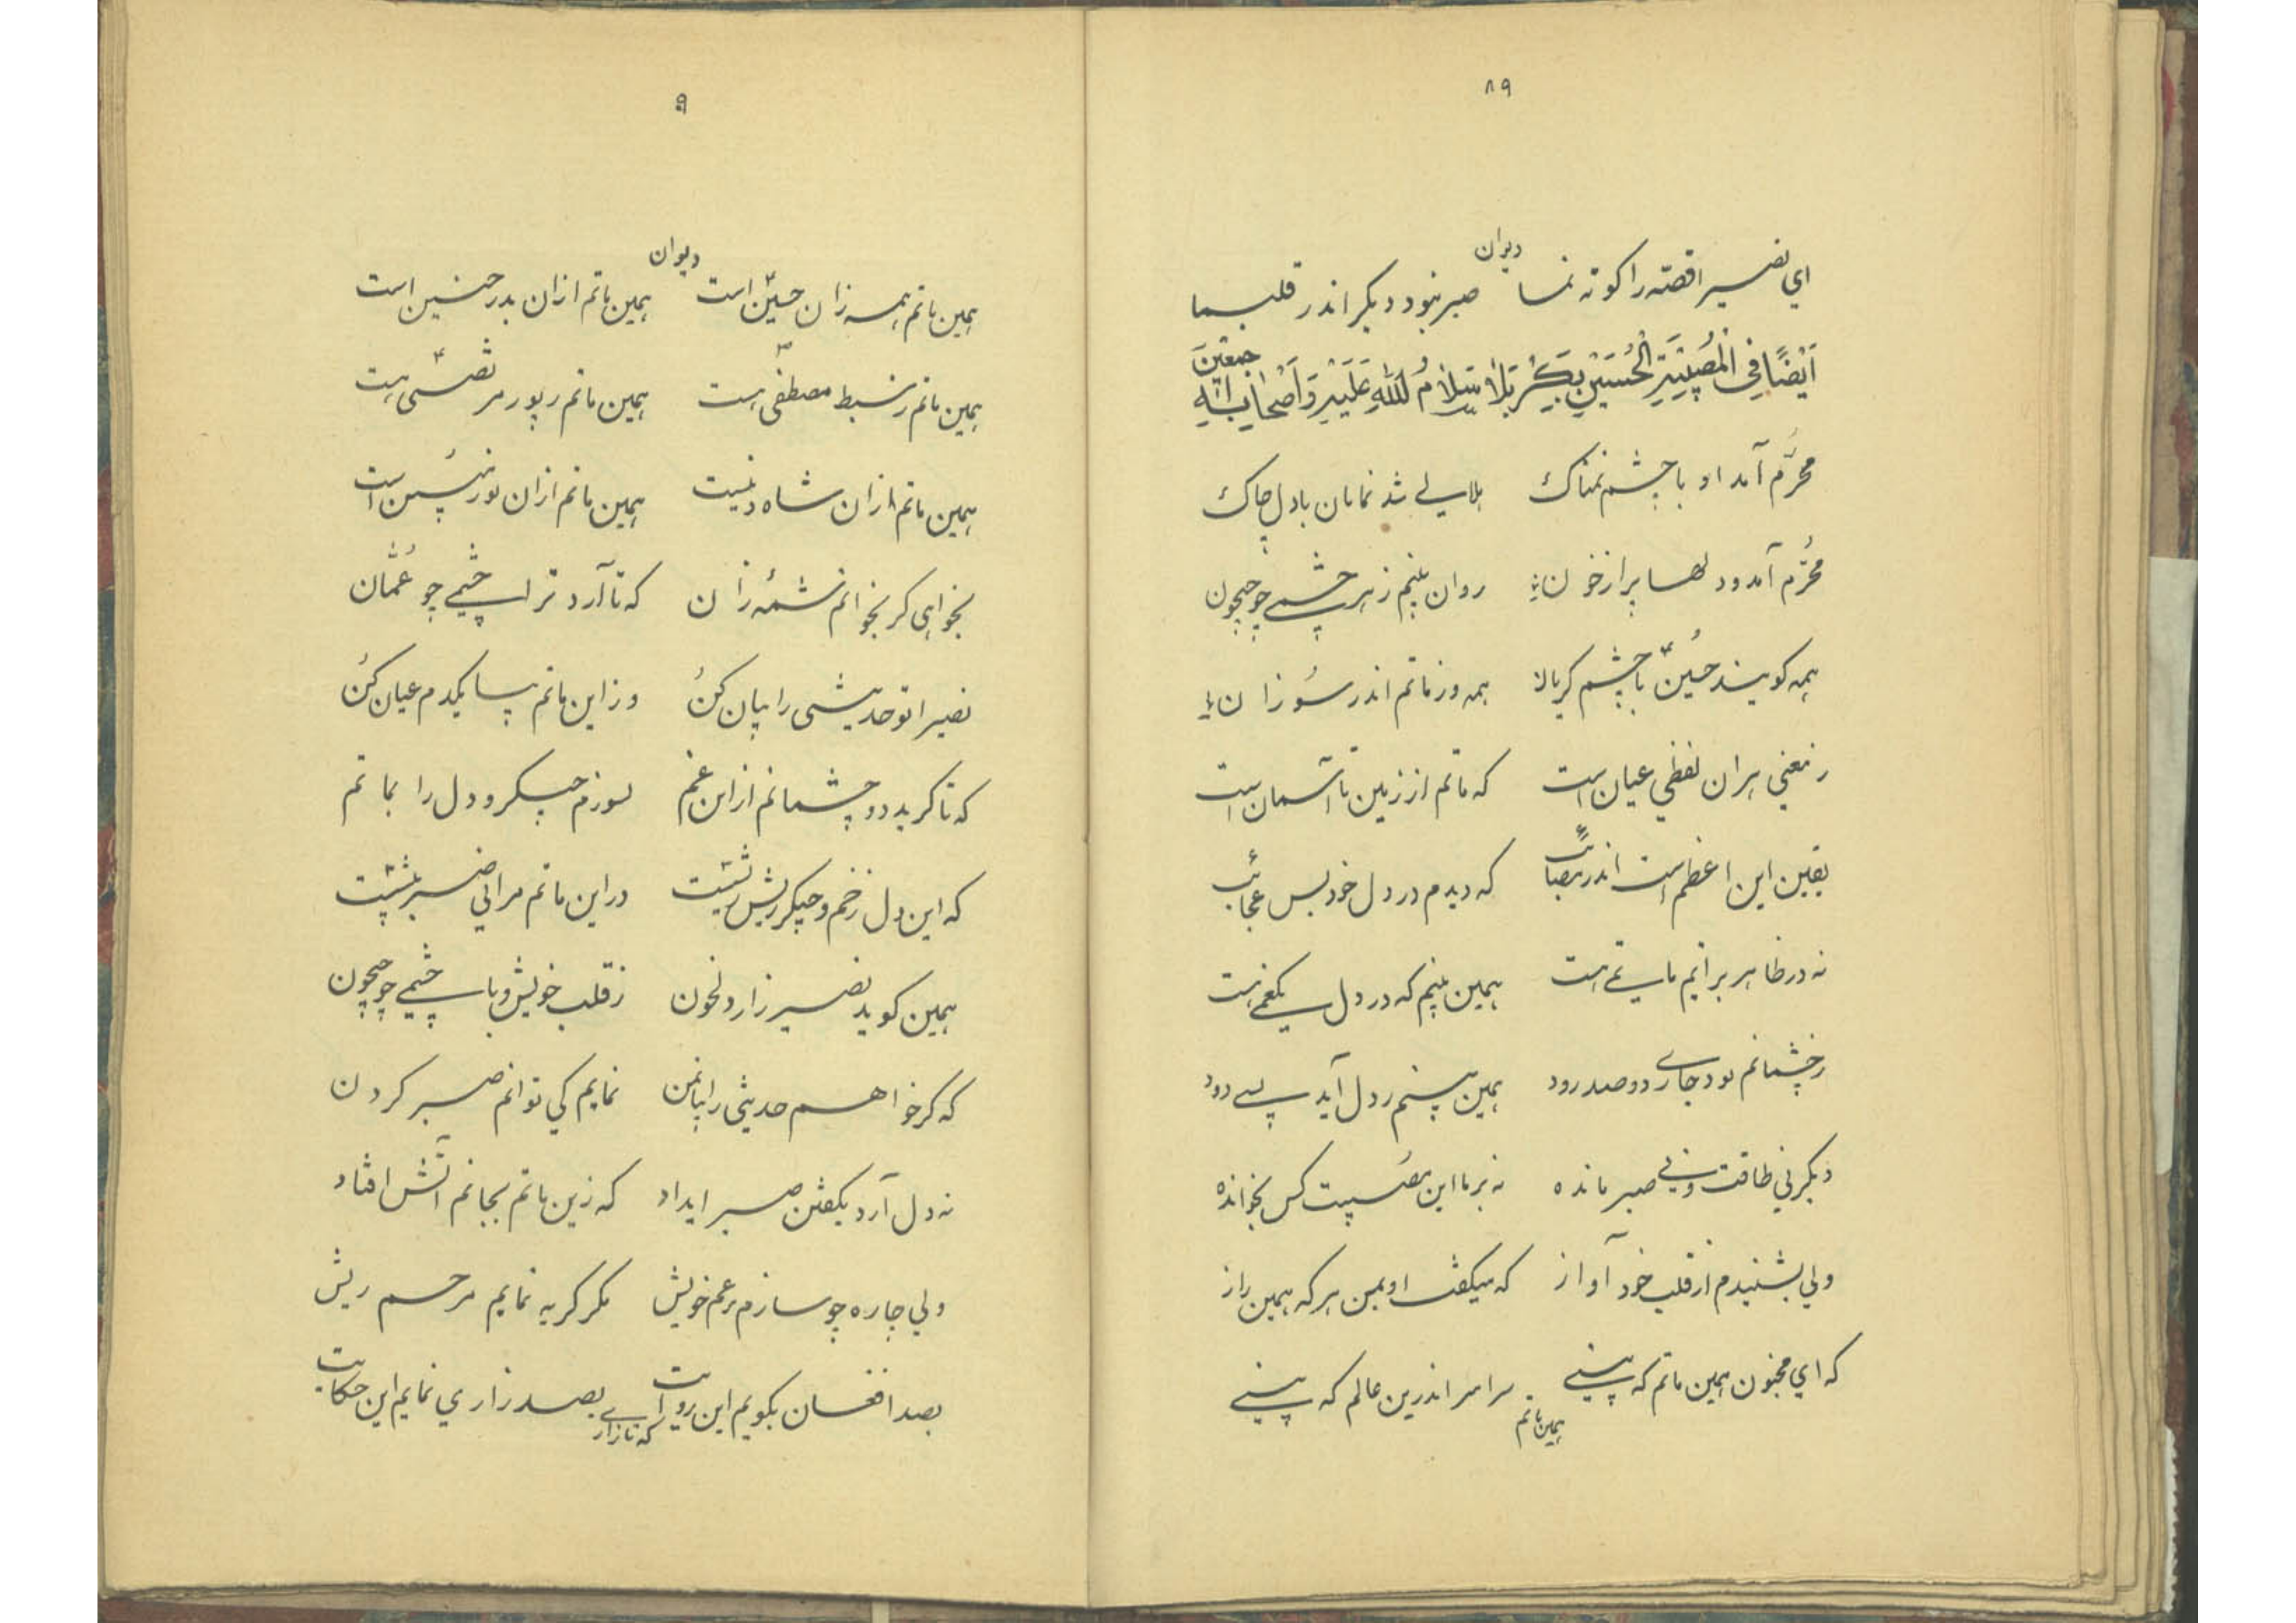 ۸۹
دیوان
ای نصیرا قصّه را کوته نما صبر نبود دیگر اندر قلب ما
اَیْضًا فِی الْمُصِیبَةِ الْحُسَیْنِ بِکَرْبَلَا سَلَامُ اللهِ عَلَیْهِ وَ اَصْحَابِهِ اجمعین
محرّم آمد او با چشم نمناک هلالی شد نمایان با دل چاک
محرّم آمد و دلها پر از خون روان بینم زهر چشمی چو جیحون
همه گویند حسینؑ با چشم گریان همه در ماتم اندر سوزان
ز معنی بر آن لفظی عیان است که ماتم از زمین تا آسمان است
یقین این اعظم است اندر مصائب که دیدم در دل خود بس عجائب
نه در ظاهر برایم ماتمی هست همین بینم که در دل یکغمی هست
ز چشمانم بود جاری دو صد رود همین بینم ز دل آید بسی دود
دیگر نی طاقت و نی صبر مانده نه بر ما این مصیبت کس بخوانده
ولی بشنیدم از قلب خود آواز که میگفت او بمن هر که همین راز
که ای مجنون همین ماتم که بینی سراسر اندرین عالم که بینی
همین ماتم
۹
دیوان
همین ماتم همه زان حسینؑ است همین ماتم از آن بدر حنین است
همین ماتم ز سبط مصطفیؐ هست همین ماتم ز پور مرتضیؑ هست
همین ماتم از آن شاه دنیست همین ماتم از آن نور است
بخواهی گر بخوانم شمّه زان که تا آرد ترا چشمی چو عُمّان
نصیرا تو حدیثی را بیان کُن وز این ماتم بیا یکدم عیان کُن
که تا گرید دو چشمانم از این غم بسوزم جگر و دل را بماتم
که این دل زخم و جگر ریش ریشست در این ماتم مرا نی صبر بیشست
همین گوید نصیر زار دلخون ز قلب خویش و با چشمی چو جیحون
که گر خواهم حدیثی را بیانمن نمایم کی توانم صبر کردن
نه دل آرد بگفتن صبر ایداد که زین ماتم بجانم آتش افتاد
ولی چاره چو سازم بر غم خویش مگر گریه نمایم مرحم ریش
بصد افغان بگویم این روایت بصد زاری نمایم این حکایت
که تا زاری